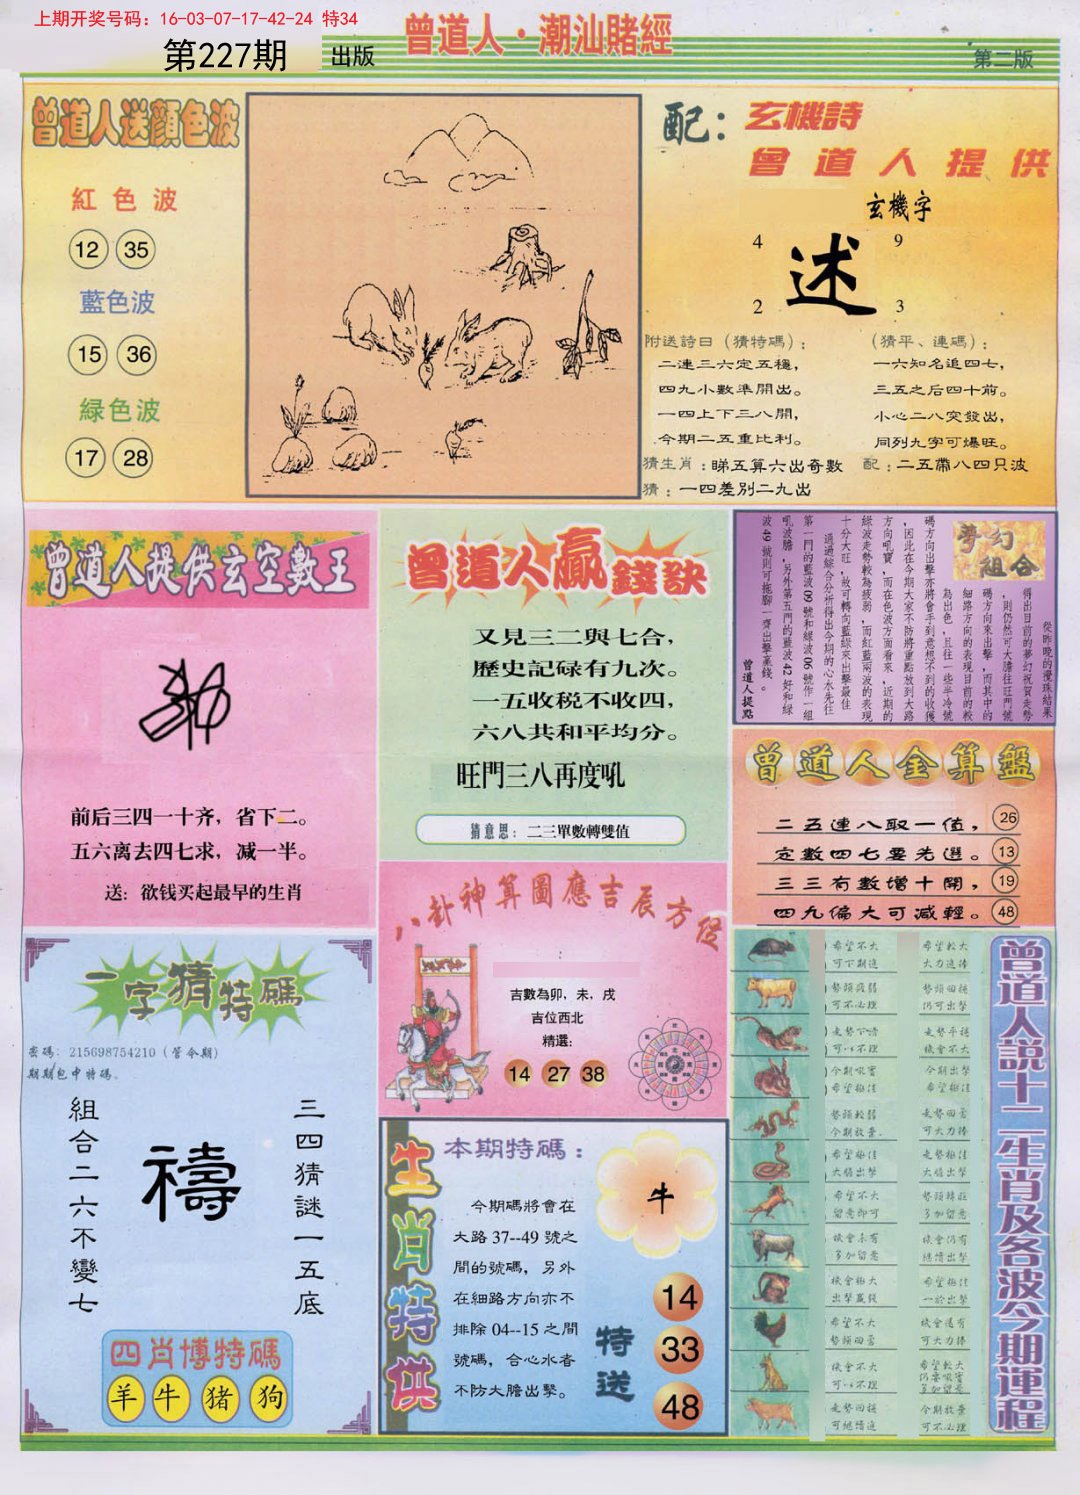 上期开奖号码：16-03-07-17-42-24 特34
第227期
出版
曾道人·潮汕賭經
第二版
曾道人送顏色波
紅色波
12 35
藍色波
15 36
緑色波
17 28
配：玄機詩
曾道人提供
玄機字
4 9
述
2 3
附送詩曰（猜特碼）：
二連三六定五穩，
四九小數準開出。
一四上下三八開，
今期二五重比利。
（猜平、連碼）：
一六知名追四七，
三五之后四十前。
小心二八突發出，
同列九字可爆旺。
猜生肖：睇五算六出奇數
配：二五帶八四只波
猜：一四差別二九出
曾道人提供玄空數王
前后三四一十齐，省下二。
五六离去四七求，减一半。
送：欲钱买起最早的生肖
曾道人贏錢訣
又見三二與七合，
歷史記碌有九次。
一五收税不收四，
六八共和平均分。
旺門三八再度吼
猜意思：二三單數轉雙值
夢幻組合
從昨晚的攪珠結果
得出目前的夢幻祝賀走勢
，則仍然可大膽往旺門號
碼方向來出擊，而其中的
細路方向的表現目前的較
為出色，且往一些半冷號
碼方向出擊亦將會手到意想不到的收獲
，因此在今期大家不防將重點放到大路
方向吼寶，而在色波方面看來，近期的
綠波走勢較為疲弱，而紅藍兩波的表現
十分大旺，故可轉向藍綠來出擊最佳
。通過綜合分析得出今期的心水先往
第一門的藍波09號和綠波06號作一組
吼波膽，另外第五門的藍波42好和綠
波49號則可拖腳一齊出擊贏錢。
曾道人提點
曾道人金算盤
二五連八取一值，26
定數四七要先選。13
三三有數增十開，19
四九偏大可減輕。48
八卦神算圖應吉辰方位
吉數為卯，未，戌
吉位西北
精選：
14 27 38
一字猜特碼
密碼：215698754210（管今期）
期期包中特碼。
組合二六不變七
禱
三四猜謎一五底
四肖博特碼
羊 牛 猪 狗
生肖特供
本期特碼：
今期碼將會在
大路37--49號之
間的號碼，另外
在細路方向亦不
排除04--15之間
號碼，合心水者
不防大膽出擊。
牛
特送
14
33
48
曾道人說十二生肖及各波今期運程
希望不大
可下期追
希望較大
大力追捧
勢頭疲弱
可不必理
勢頭回穩
仍可出擊
走勢平穩
機會不大
今期吼寶
希望極佳
今期出擊
希望極佳
勢頭較弱
今期放棄
走勢回喜
可大力捧
希望極佳
大膽出擊
走勢極佳
大膽出擊
希望不大
留意即可
多加留意
機會未有
多加留意
機會仍有
繼續出擊
機會極大
出擊贏錢
希望極佳
一於出擊
希望不大
勢頭回喜
機會還有
可大力捧
機會不大
希望較大
仍要吼寶
多加留意
走勢回穩
可繼續追
今期放棄
可不必理